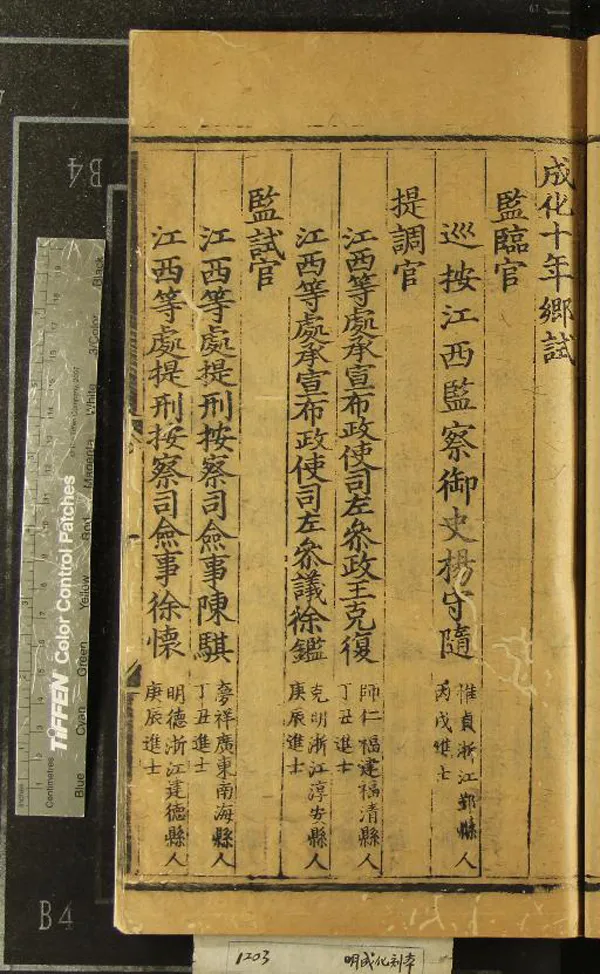 成化十年鄉試
監臨官
巡按江西監察御史楊守隨
惟貞浙江鄞縣人
丙戌進士
提調官
江西等處承宣布政使司左參政王克復
師仁福建福清縣人
丁丑進士
江西等處承宣布政使司左叅議徐鑑
克明浙江淳安縣人
庚辰進士
監試官
江西等處提刑按察司僉事陳騏
夢祥廣東南海縣人
丁丑進士
江西等處提刑按察司僉事徐懷
明德浙江建德縣人
庚辰進士
B4
B4
TIFFEN Color Control Patches
Blue
Cyan
Green
Yellow
Red
Magenta
White
3/Color
Black
Centimetres
Inches
1203
明成化刻本